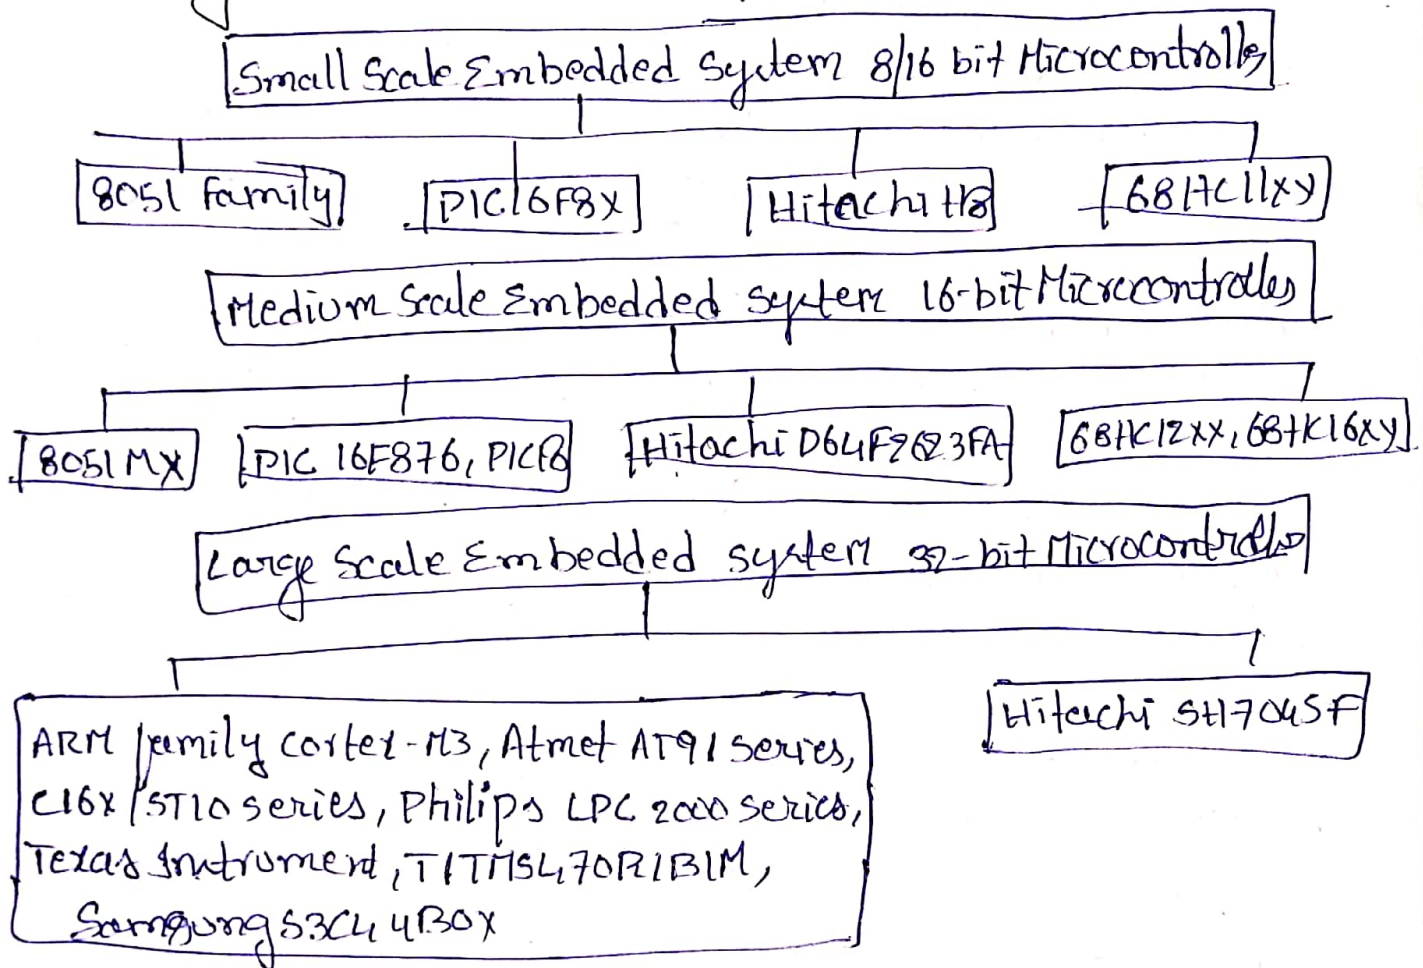 Small Scale Embedded System 8/16 bit Microcontroller
8051 family PIC16F8X Hitachi H8 68HC11xy
Medium Scale Embedded system 16-bit Microcontroller
8051 MX PIC 16F876, PICF8 Hitachi D64F2623FA 68HC12xx, 68HC16xy
Large Scale Embedded system 32-bit Microcontroller
ARM family cortex-M3, Atmet AT91 Series, Hitachi SH7045F
C16x/ST10 series, Philips LPC 2000 series,
Texas Instrument, TITMS470R1B1M,
Samsung S3C44B0X